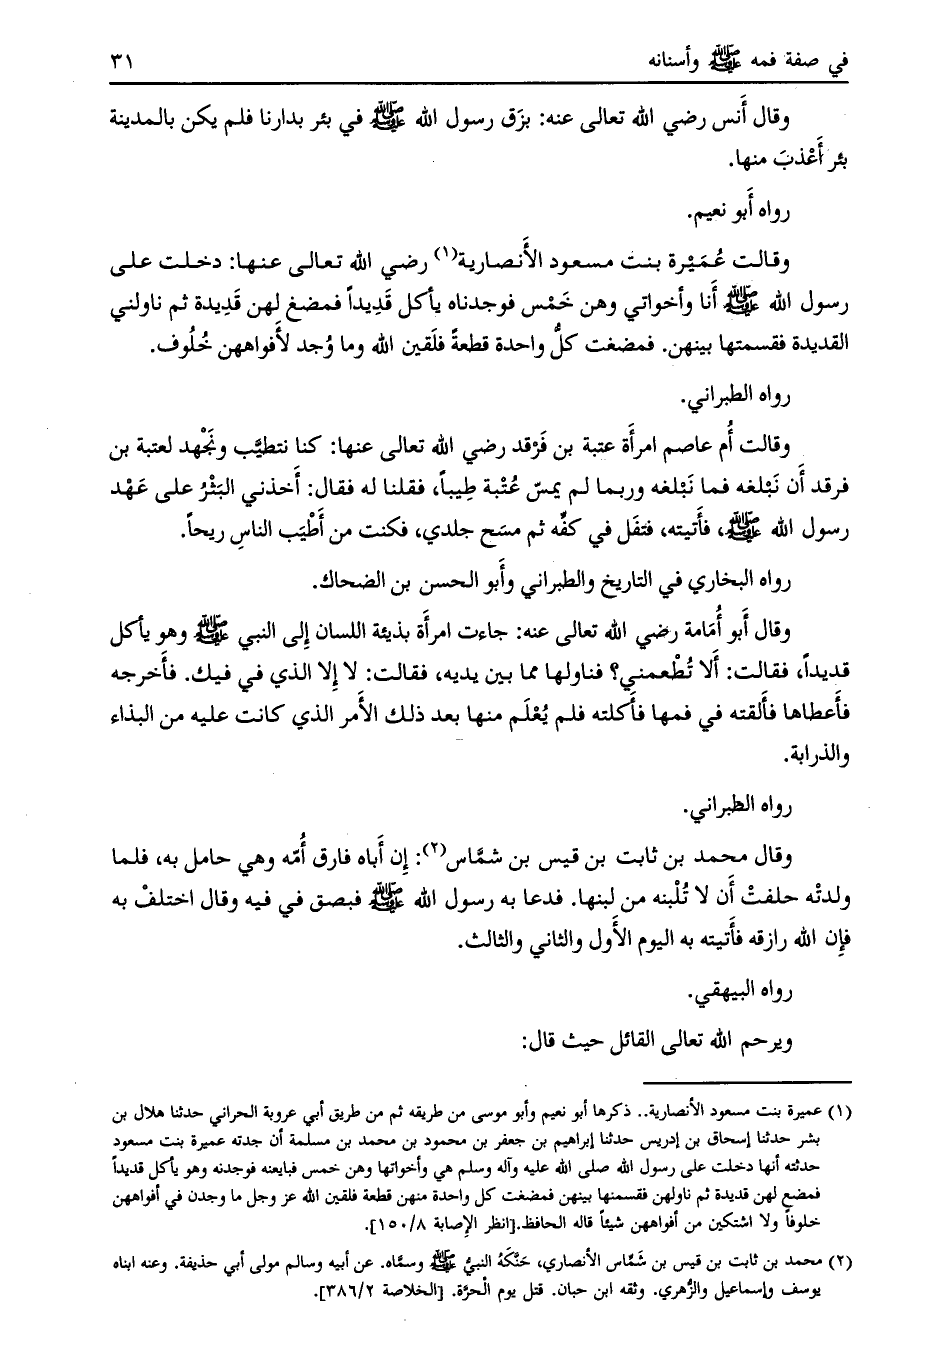 في صفة فمه ﷺ وأسنانه ٣١
وقال أَنس رضي الله تعالى عنه: بزَق رسول الله ﷺ في بئر بدارنا فلم يكن بالمدينة
بئر أَعْذبَ منها.
رواه أَبو نعيم.
وقالت عُمَيْرة بنت مسعود الأَنصارية(١) رضي الله تعالى عنها: دخلت على
رسول الله ﷺ أَنا وأخواتي وهن خَمْس فوجدناه يأكل قَدِيداً فمضغ لهن قَدِيدة ثم ناولني
القديدة فقسمتها بينهن. فمضغت كلُّ واحدة قطعةً فلَقين الله وما وُجد لأَفواههن خُلُوف.
رواه الطبراني.
وقالت أُم عاصم امرأَة عتبة بن فَرْقد رضي الله تعالى عنها: كنا نتطيَّب ونَجْهد لعتبة بن
فرقد أَن نَبْلغه فما نَبْلغه وربما لم يمسّ عُتْبة طِيباً، فقلنا له فقال: أَخذني البَثْرُ على عَهْد
رسول الله ﷺ، فأَتيته، فتفَل في كفِّه ثم مسَح جلدي، فكنت من أَطْيَب الناسِ ريحاً.
رواه البخاري في التاريخ والطبراني وأَبو الحسن بن الضحاك.
وقال أَبو أُمَامة رضي الله تعالى عنه: جاءت امرأَة بذيئة اللسان إِلى النبي ﷺ وهو يأكل
قديداً، فقالت: أَلا تُطْعمني؟ فناولها مما بين يديه، فقالت: لا إِلا الذي في فيك. فأَخرجه
فأَعطاها فأَلقته في فمها فأَكلته فلم يُعْلَم منها بعد ذلك الأَمر الذي كانت عليه من البذاء
والذرابة.
رواه الطبراني.
وقال محمد بن ثابت بن قيس بن شمَّاس(٢): إِن أَباه فارق أُمّه وهي حامل به، فلما
ولدتْه حلفتْ أَن لا تُلْبنه من لبنها. فدعا به رسول الله ﷺ فبصق في فيه وقال اختلفْ به
فإِن الله رازقه فأَتيته به اليوم الأَول والثاني والثالث.
رواه البيهقي.
ويرحم الله تعالى القائل حيث قال:
(١) عميرة بنت مسعود الأنصارية.. ذكرها أبو نعيم وأبو موسى من طريقه ثم من طريق أبي عروبة الحراني حدثنا هلال بن
بشر حدثنا إسحاق بن إدريس حدثنا إبراهيم بن جعفر بن محمود بن محمد بن مسلمة أن جدته عميرة بنت مسعود
حدثته أنها دخلت على رسول الله صلى الله عليه وآله وسلم هي وأخواتها وهن خمس فبايعنه فوجدنه وهو يأكل قديداً
فمضغ لهن قديدة ثم ناولهن فقسمنها بينهن فمضغت كل واحدة منهن قطعة فلقين الله عز وجل ما وجدن في أفواههن
خلوفاً ولا اشتكين من أفواههن شيئاً قاله الحافظ.[انظر الإصابة ١٥٠/٨].
(٢) محمد بن ثابت بن قيس بن شَمَّاس الأنصاري، حَنَّكَهُ النبيُّ ﷺ وسمَّاه. عن أبيه وسالم مولى أبي حذيفة. وعنه ابناه
يوسف وإسماعيل والزُّهري. وثقه ابن حبان. قتل يوم الْحرَّة. [الخلاصة ٣٨٦/٢].